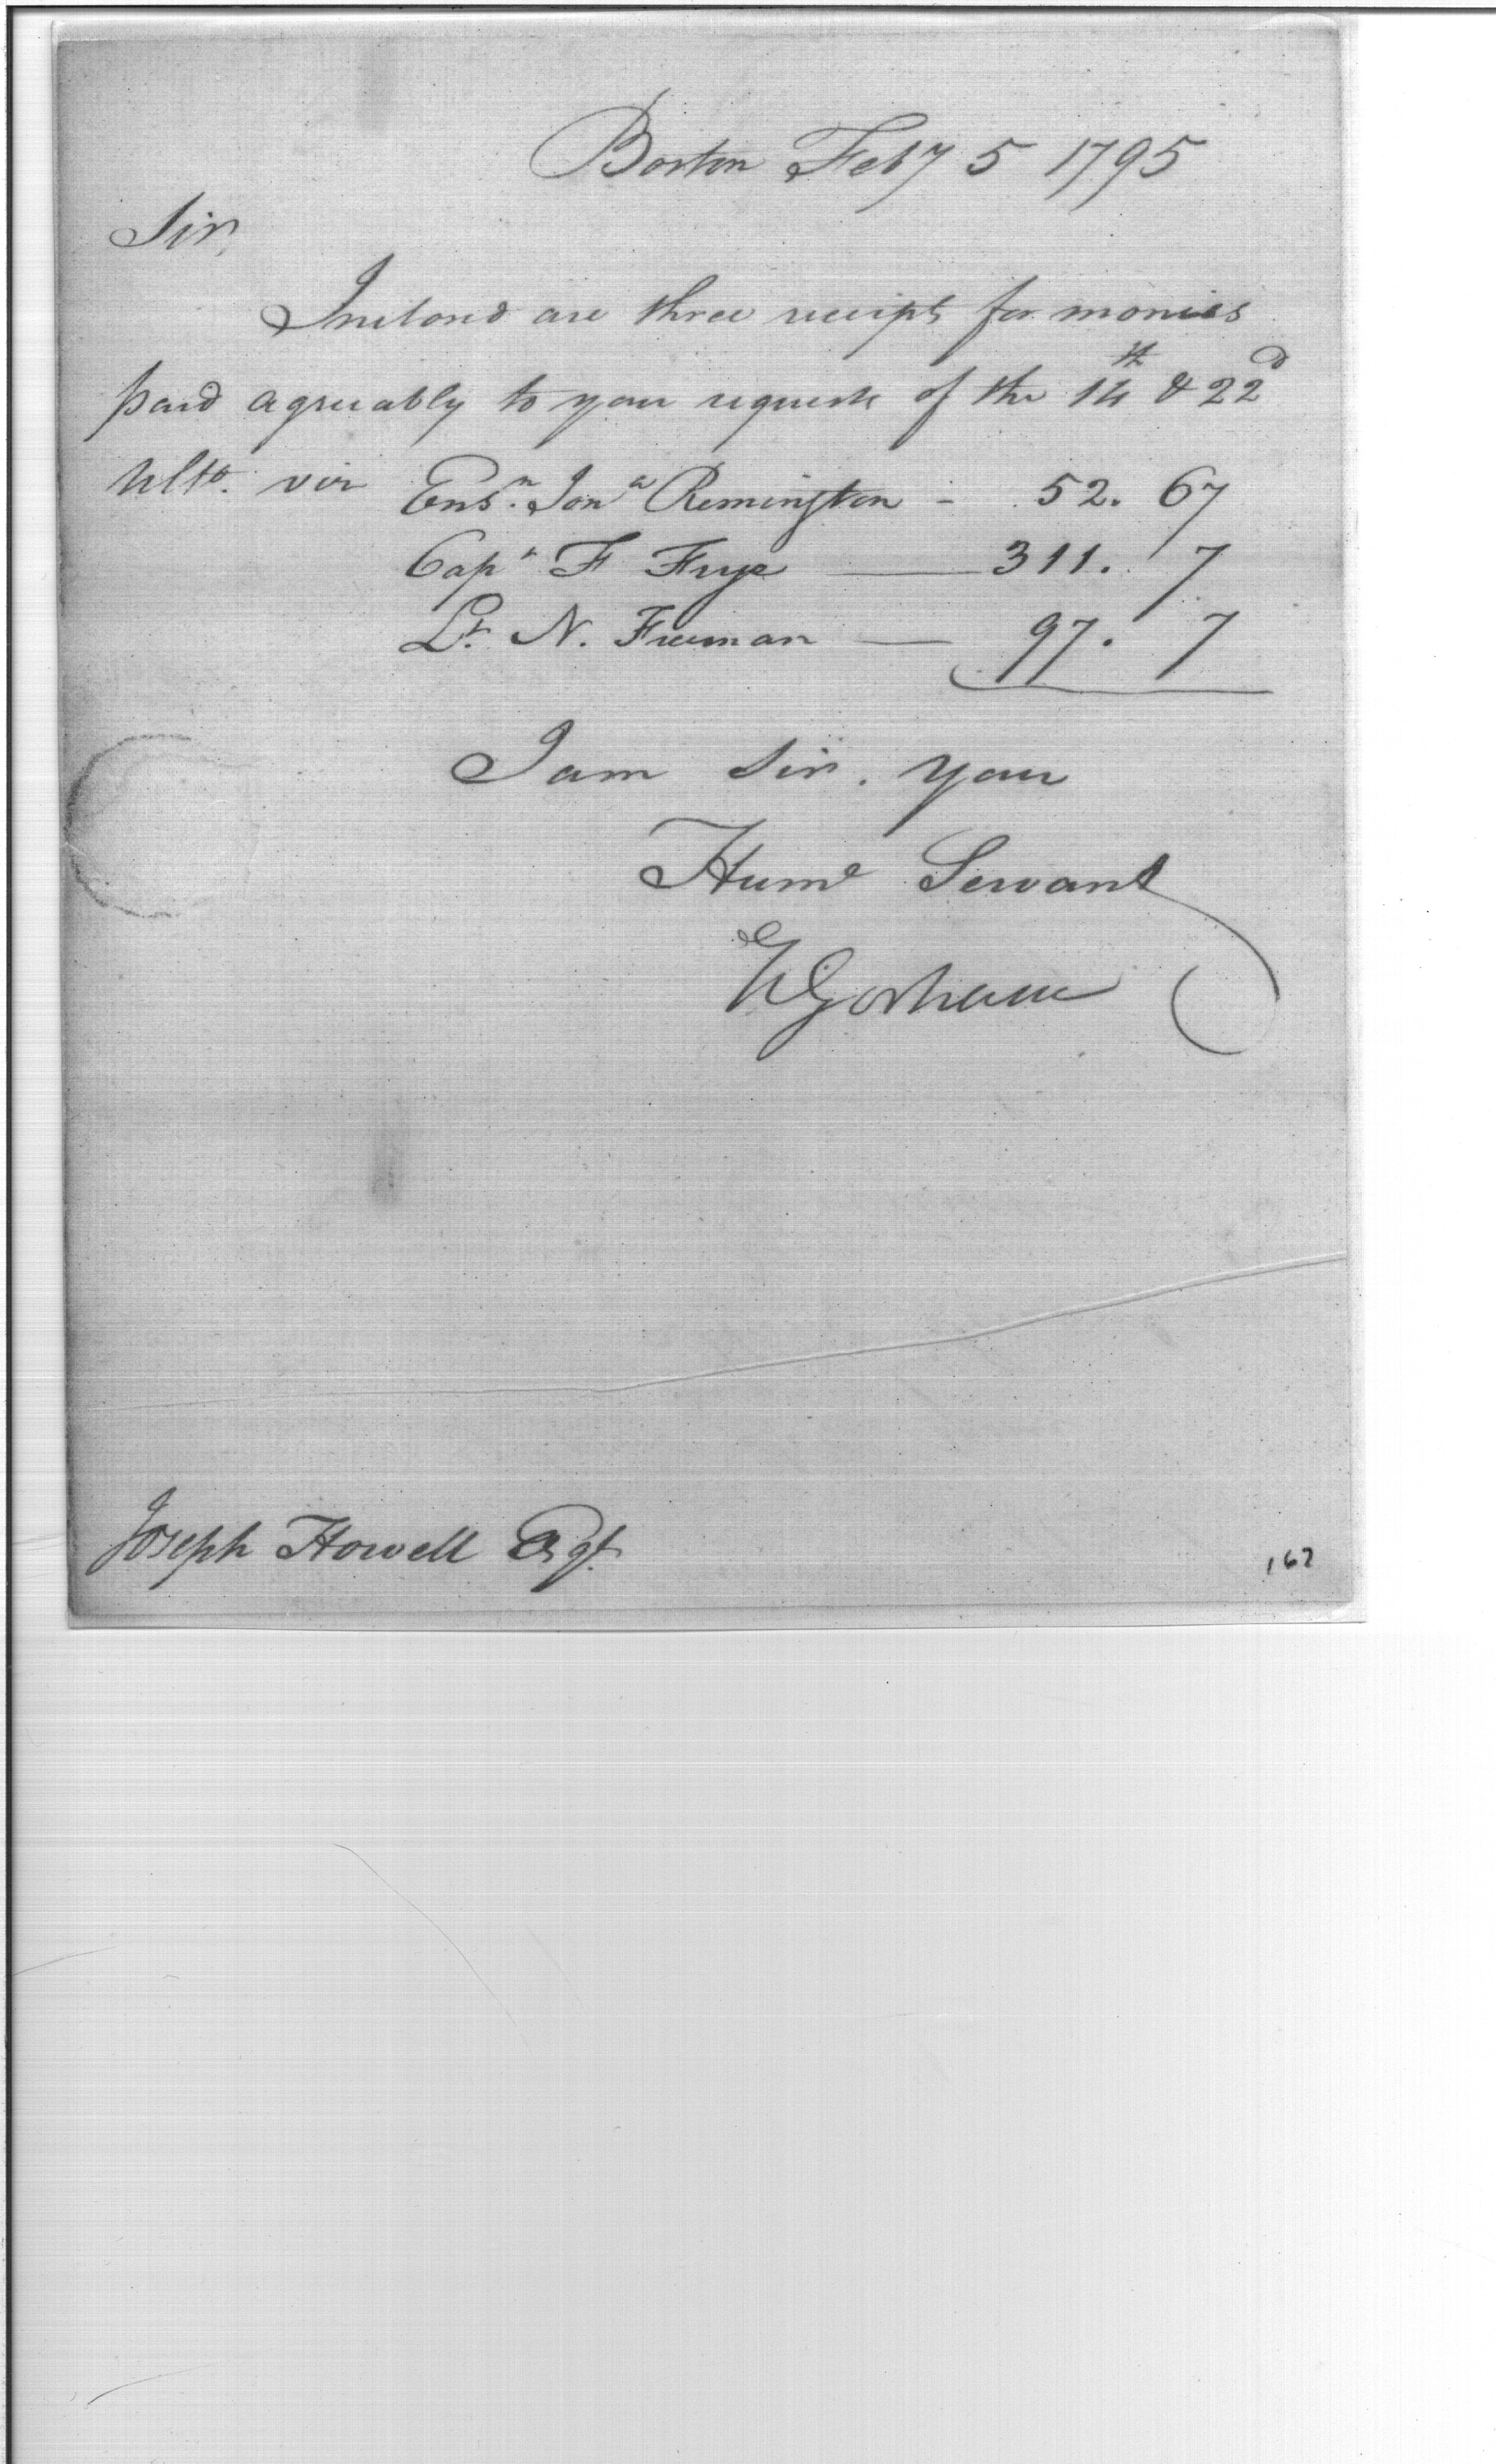 Boston Feby 5 1795
Sir,
Inclosed are three receipts for monies
paid agreeably to your requests of the 14th & 22d
Ulto. viz Ensn. Jona Remington - 52. 67
Capn F Frye — 311. 7
Lt. N. Freeman — 97. 7
I am Sir. your
Hume Servant
N Gorham
Joseph Howell Esqr.
167